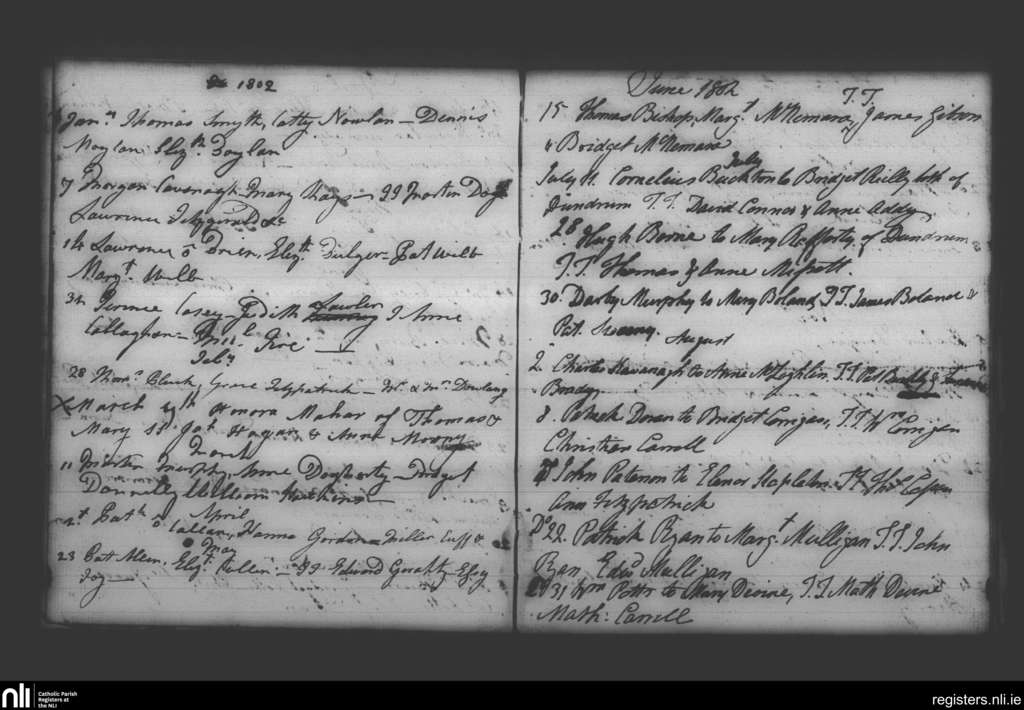 1802
Jan.y Thomas Smyth, Catty Nowlan — Dennis
Moylan Eliz.th Doylan
7 Morgan Cavenagh Mary Hays — JJ Martin
Lawrence Fitzgerald &c
14 Lawrence o Brien, Eliz.th Dulger — Pat Wilb
Marg.t Wilb
Terence Casey — Judith Lawler J Anne
Callaghan — Tire —
Feb.y
28 Thos. Cluck, Grace Fitzpatrick — Mr. & Mrs. Dowling
X March 4th Honora Mahar of Thomas &
Mary Sp. Jon. Hagan & Anne
March
11 Martin Murphy, Anne Dogherty — Bridget
Donnelly William Hutchins —
April
Pat.k o Callan, Hanna Gordon — Miller Cuff &
May
23 Pat Eliz.th Cullen — JJ Edward Geraghty Esq
Joy —
June 1802
T.T.
15 Thomas Bishop, Marg.t McNemara, James Gibson
& Bridget McNemara
July
July 11. Cornelius Buckton to Bridget Reilly both of
Dundrum T.T. David Connor & Anne Addy
28 Hugh Borne to Mary Rafferty, of Dundrum
T.T. Thomas & Anne Missett.
30. Darby Murphy to Mary Boland, T.T. James Boland &
Pat. Sweeny.
August
2. Charles Kavanagh to Anne McLoghlin, T.T. Pat
Brady.
8. Patrick Doran to Bridget Corrigan, T.T. Wm Corrigan
Christian Carroll
John Paterson to Elenor Stapleton. TT Thos.
Ann Fitzpatrick
Do 22. Patrick Ryan to Marg.t Mulligan T.T. John
Ryan, Edwd Mulligan
31 Wm Pottr to Mary Devine, T.T. Math Devine
Math: Carroll
nli
Catholic Parish
Registers at
the NLI
registers.nli.ie